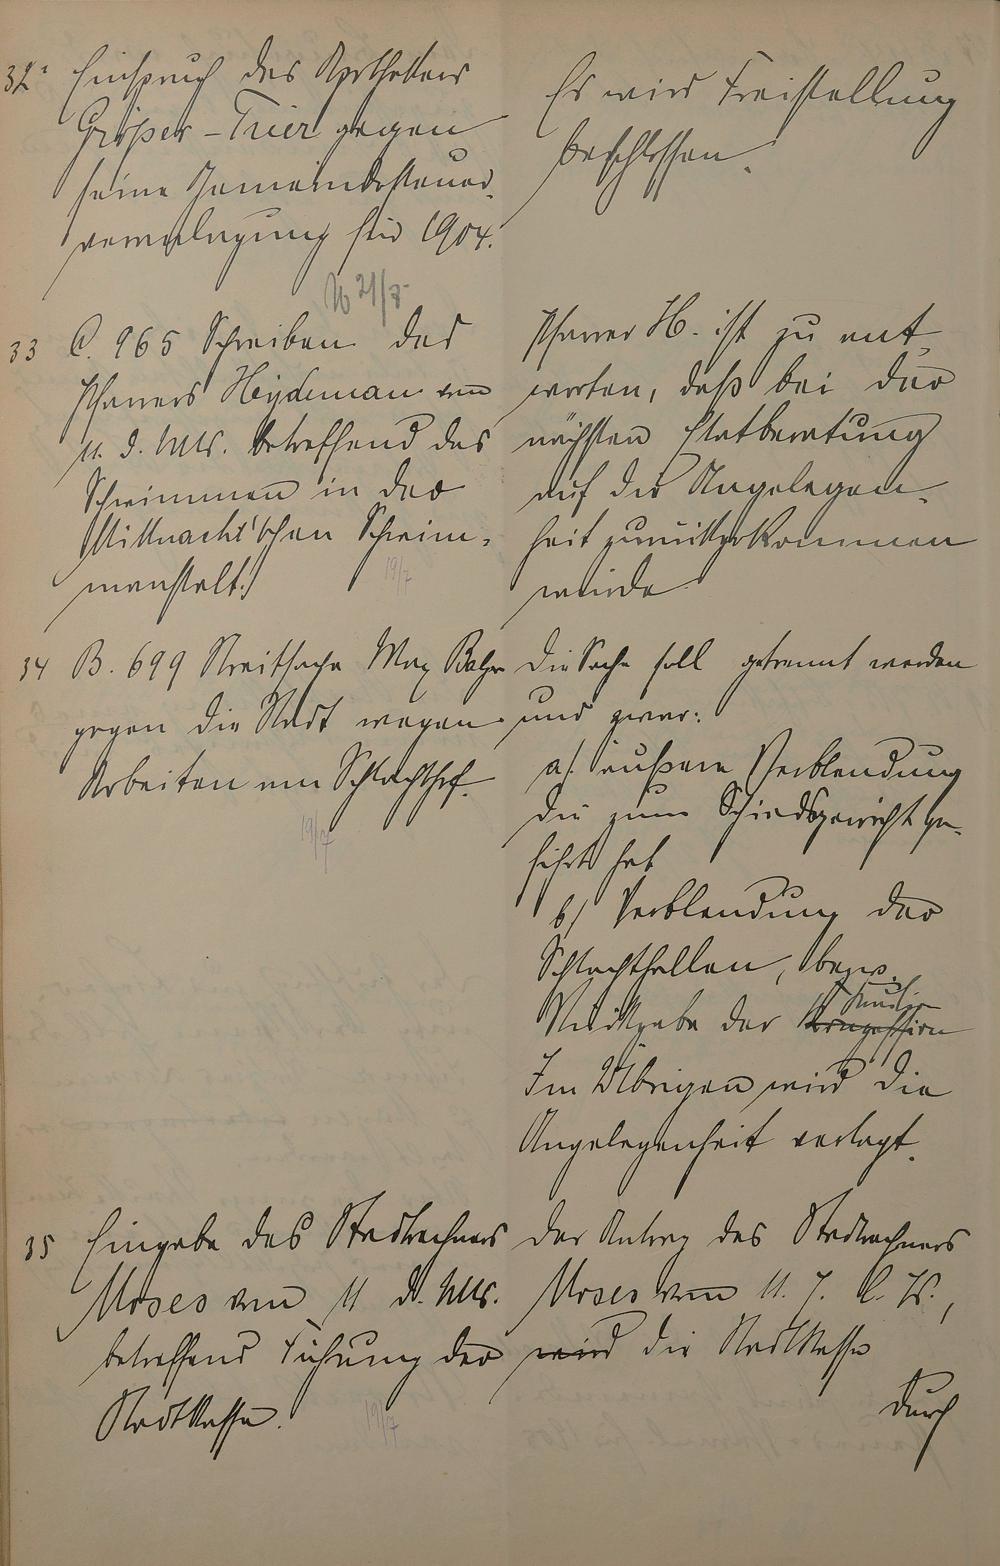 32. Einspruch des Apothekers
Gröper-Trier gegen
seine Gemeindesteuer-
veranlagung für 1904.
21/7
Es wird Freistellung
beschlossen.
33 C. 965 Schreiben des
Pfarrers Heydeman vom
11. d. Mts. betreffend das
Schwimmen in der
Mittnacht'schen Schwim-
manstalt.
19/7
Pfarrer H. ist zu ant-
worten, daß bei der
nächsten Etatberatung
auf die Angelegen-
heit zurückgekommen
würde
34 B. 699 Streitsache Max
gegen die Stadt wegen
Arbeiten am Schlachthof.
19/7
Die Sache soll getrennt werden
und zwar:
a/. äußere Verblendung
die zum Schiedsgericht ge-
führt hat
b/ Verblendung der
Schlachthallen, bezw.
Kaution
Rückgabe der Konzession
Im Übrigen wird die
Angelegenheit vertagt.
35 Eingabe des Stadtrechners
Moses vom 11 d. Mts.
betreffend Führung der
Stadtkasse.
19/7
Der Antrag des Stadtrechners
Moses vom 11. 7. l. Js.,
wird die Stadtkasse
durch